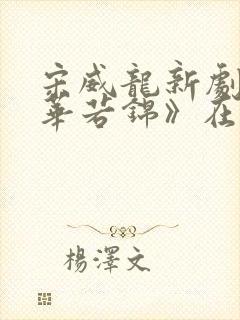 宋威龍新劇
華若錦》在
楊澤文